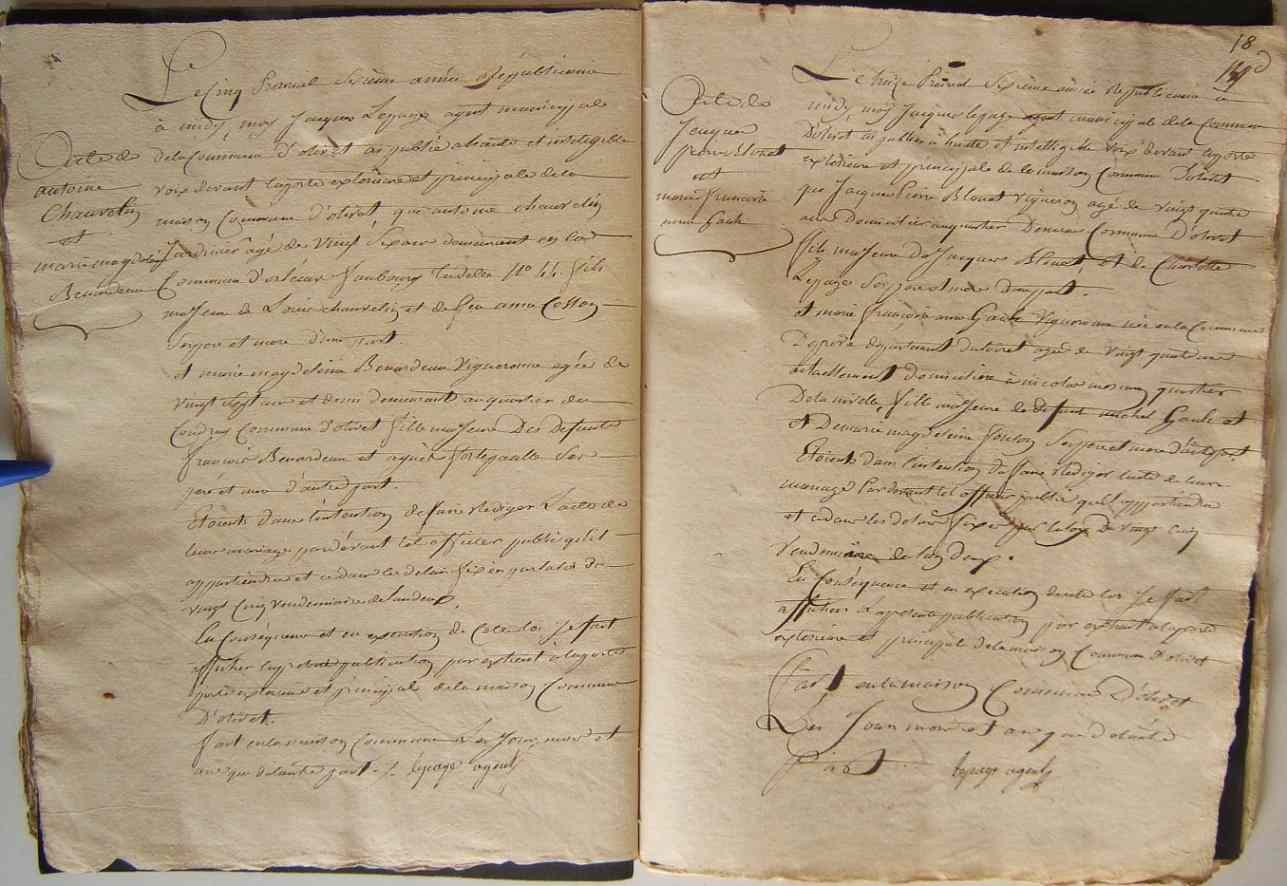 Le Cinq Prairial Sixieme année Republicaine
à midy, moy Jacques Lepage agent municipale
de la Commune d'olivet ai publié à haute et intelligible
voix devant la porte exterieure et principale de la
maison Commune d'olivet, que antoine chauvelin
Jardinier agé de Vingt Six ans demeurant en la
Commune d'orleans faubourg No 44 fils
majeure de Louis chauvelin et de feu anne Cosson
Ses pere et mere d'une part
et marie magdeleine Benardeau Vigneronne agée de
vingt Sept ans et demi demeurant au quartier du
Coudray Commune d'olivet fille majeure Des defunts
françois Benardeau et agnès Ses
pere et mere d'autre part.
Etoients dans l'intention de faire Rediger l'acte de
leur mariage pardevant tel officier public qu'il
appartiendra et ce dans les delais fixés par la loi de
vingt Cinq vendemiaire de l'an deux.
En Conséquence et en execution de Cette loi Je fait
afficher la presente publication par extrait à la porte
porte exterieure et principal de la maison Commune
D'olivet.
fait en la maison Commune Les Jour, mois et
an que d'autre part lepage agent
acte de
antoine
Chauvelin
et
marie magdeleine
Benardeau
18
Le Prairial Sixieme année Republicaine à
midy, moy Jacques lepage agent municipale de la Commune
D'olivet ai publié à haute et intelligible voix devant la porte
exterieure et principale de la maison Commune D'olivet
que Jacques Pierre Blouet vigneron agé de vingt quatre
ans Domicilié au quartier Commune D'olivet
fils majeure de Jacques Blouet, et de Charlotte
Lepage Ses pere et mere D'une part.
et marie françoise anne Gault Vigneronne née en la Commune
departement du Loiret agée de vingt quatre ans
actuellement domiciliée à quartier
De la nivelle, fille majeure de defunt michel Gault et
et De marie magdeleine Ses pere et mere d'autre part.
Etoients dans l'intention de faire Rediger l'acte de leur
mariage Pardevant tel officier public qu'il appartiendra
et ce dans les delais fixés par la loy de vingt Cinq
Vendemiaire de l'an Deux.
En Conséquence et en execution de cette loi Je fait
afficher la presente publication par extrait à la porte
exterieure et principal de la maison Commune D'olivet
fait en la maison Commune D'olivet
Les Jour mois et an
lepage agent
acte de
Jacques
pierre Blouet
et
marie françoise
anne Gault